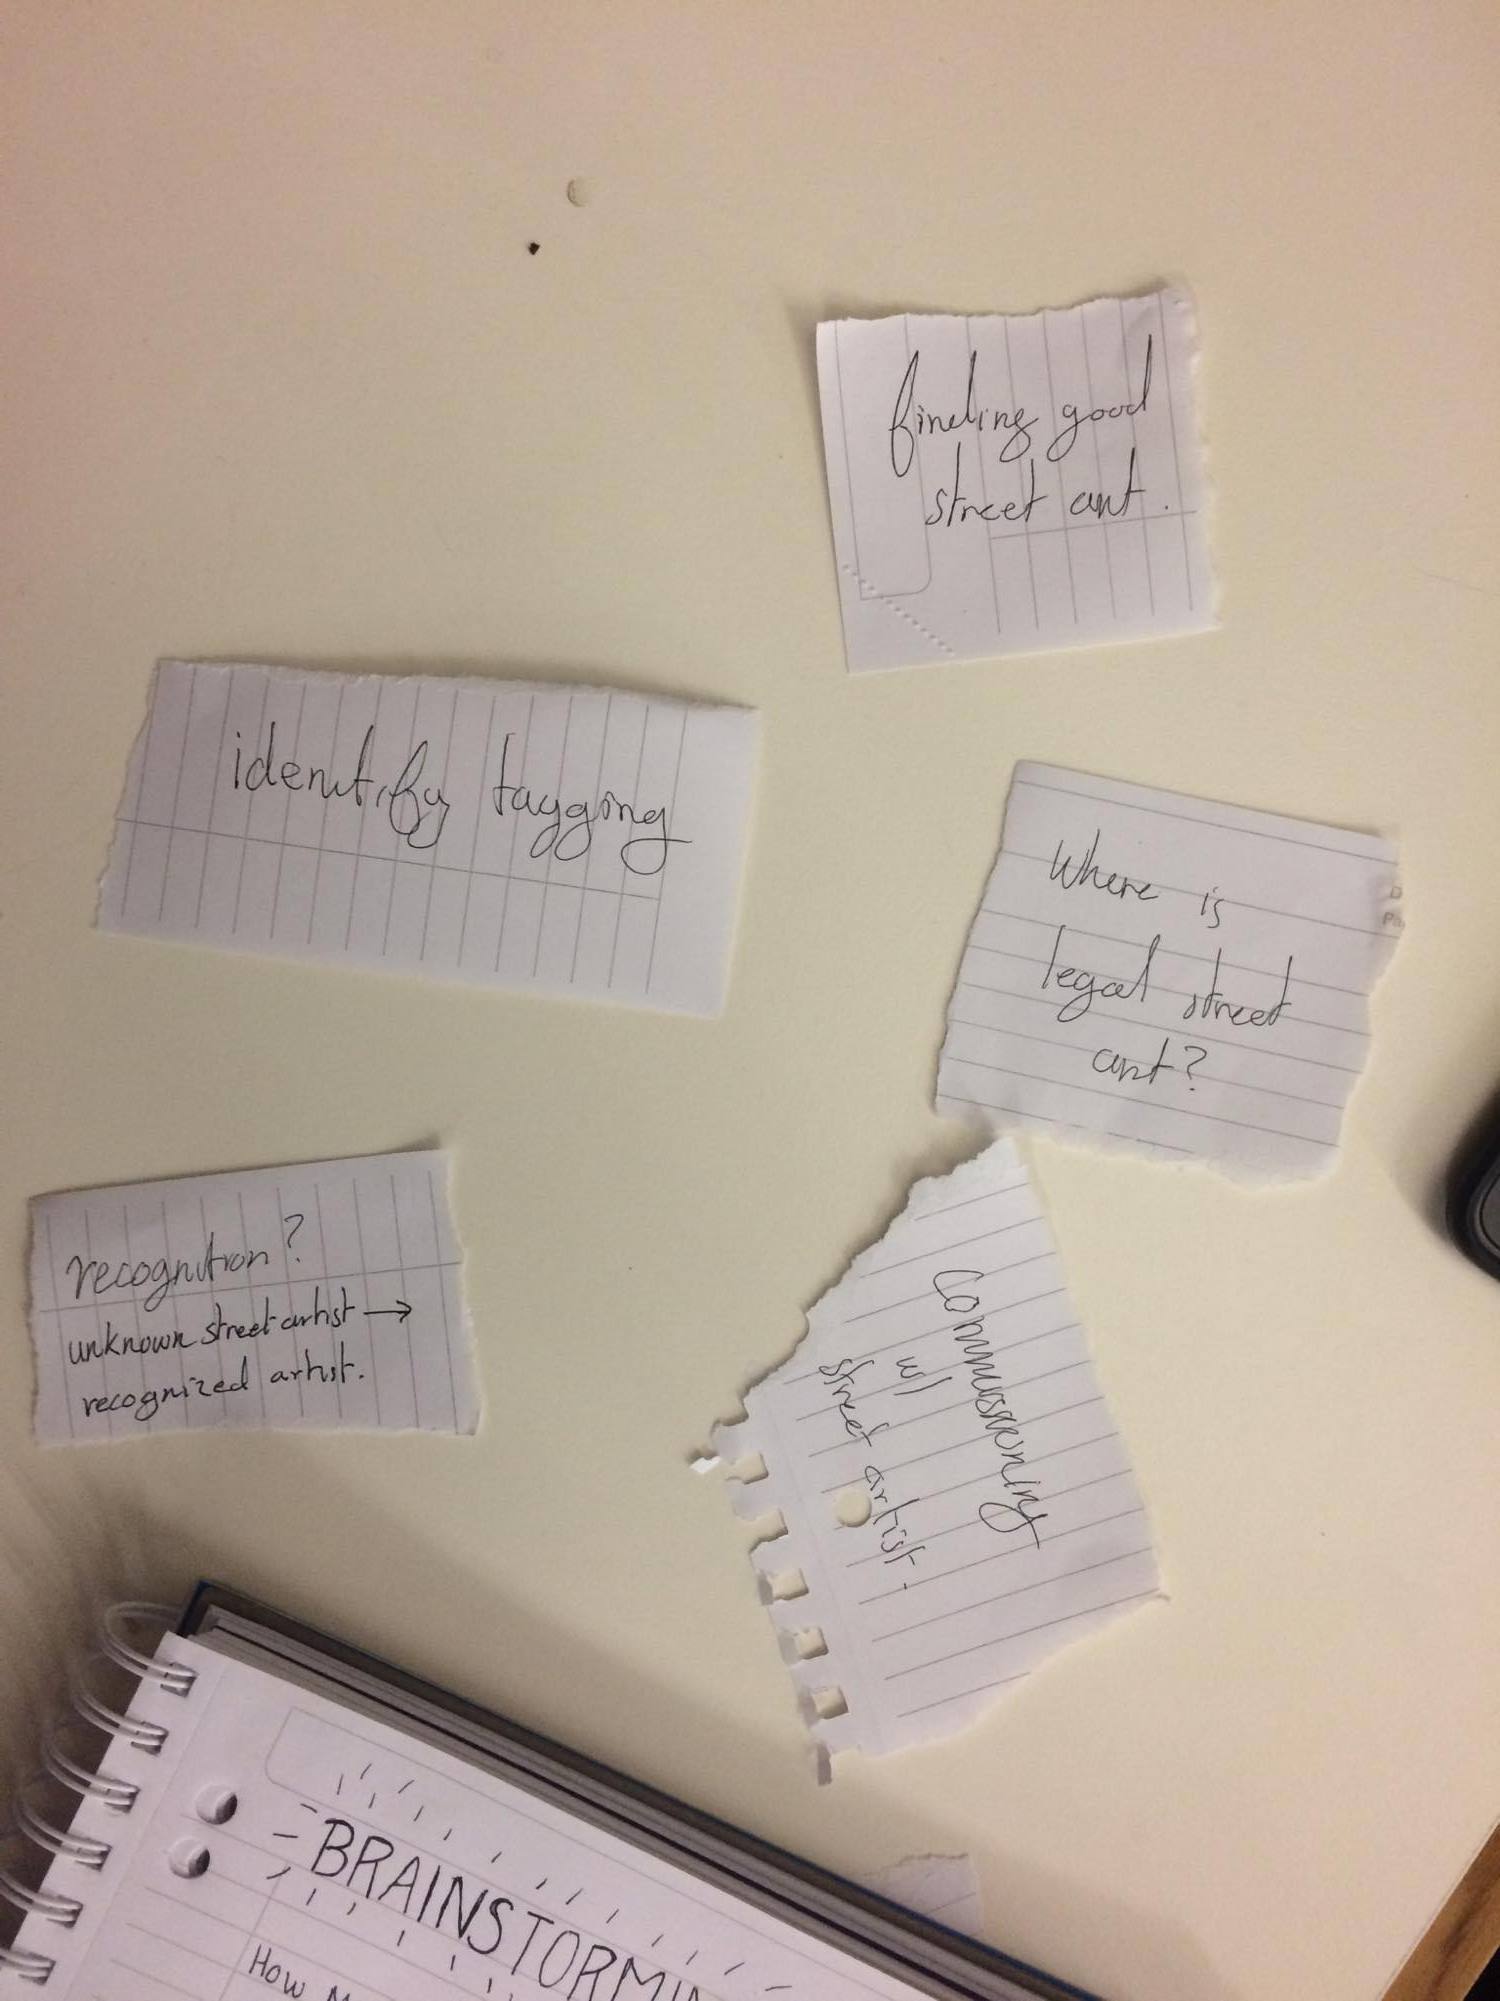 finding good
street art.
identify tagging
Where is
legal street
art?
recognition?
unknown street artist →
recognized artist.
Commissioning
w/
street artist.
BRAINSTORMIN
How M